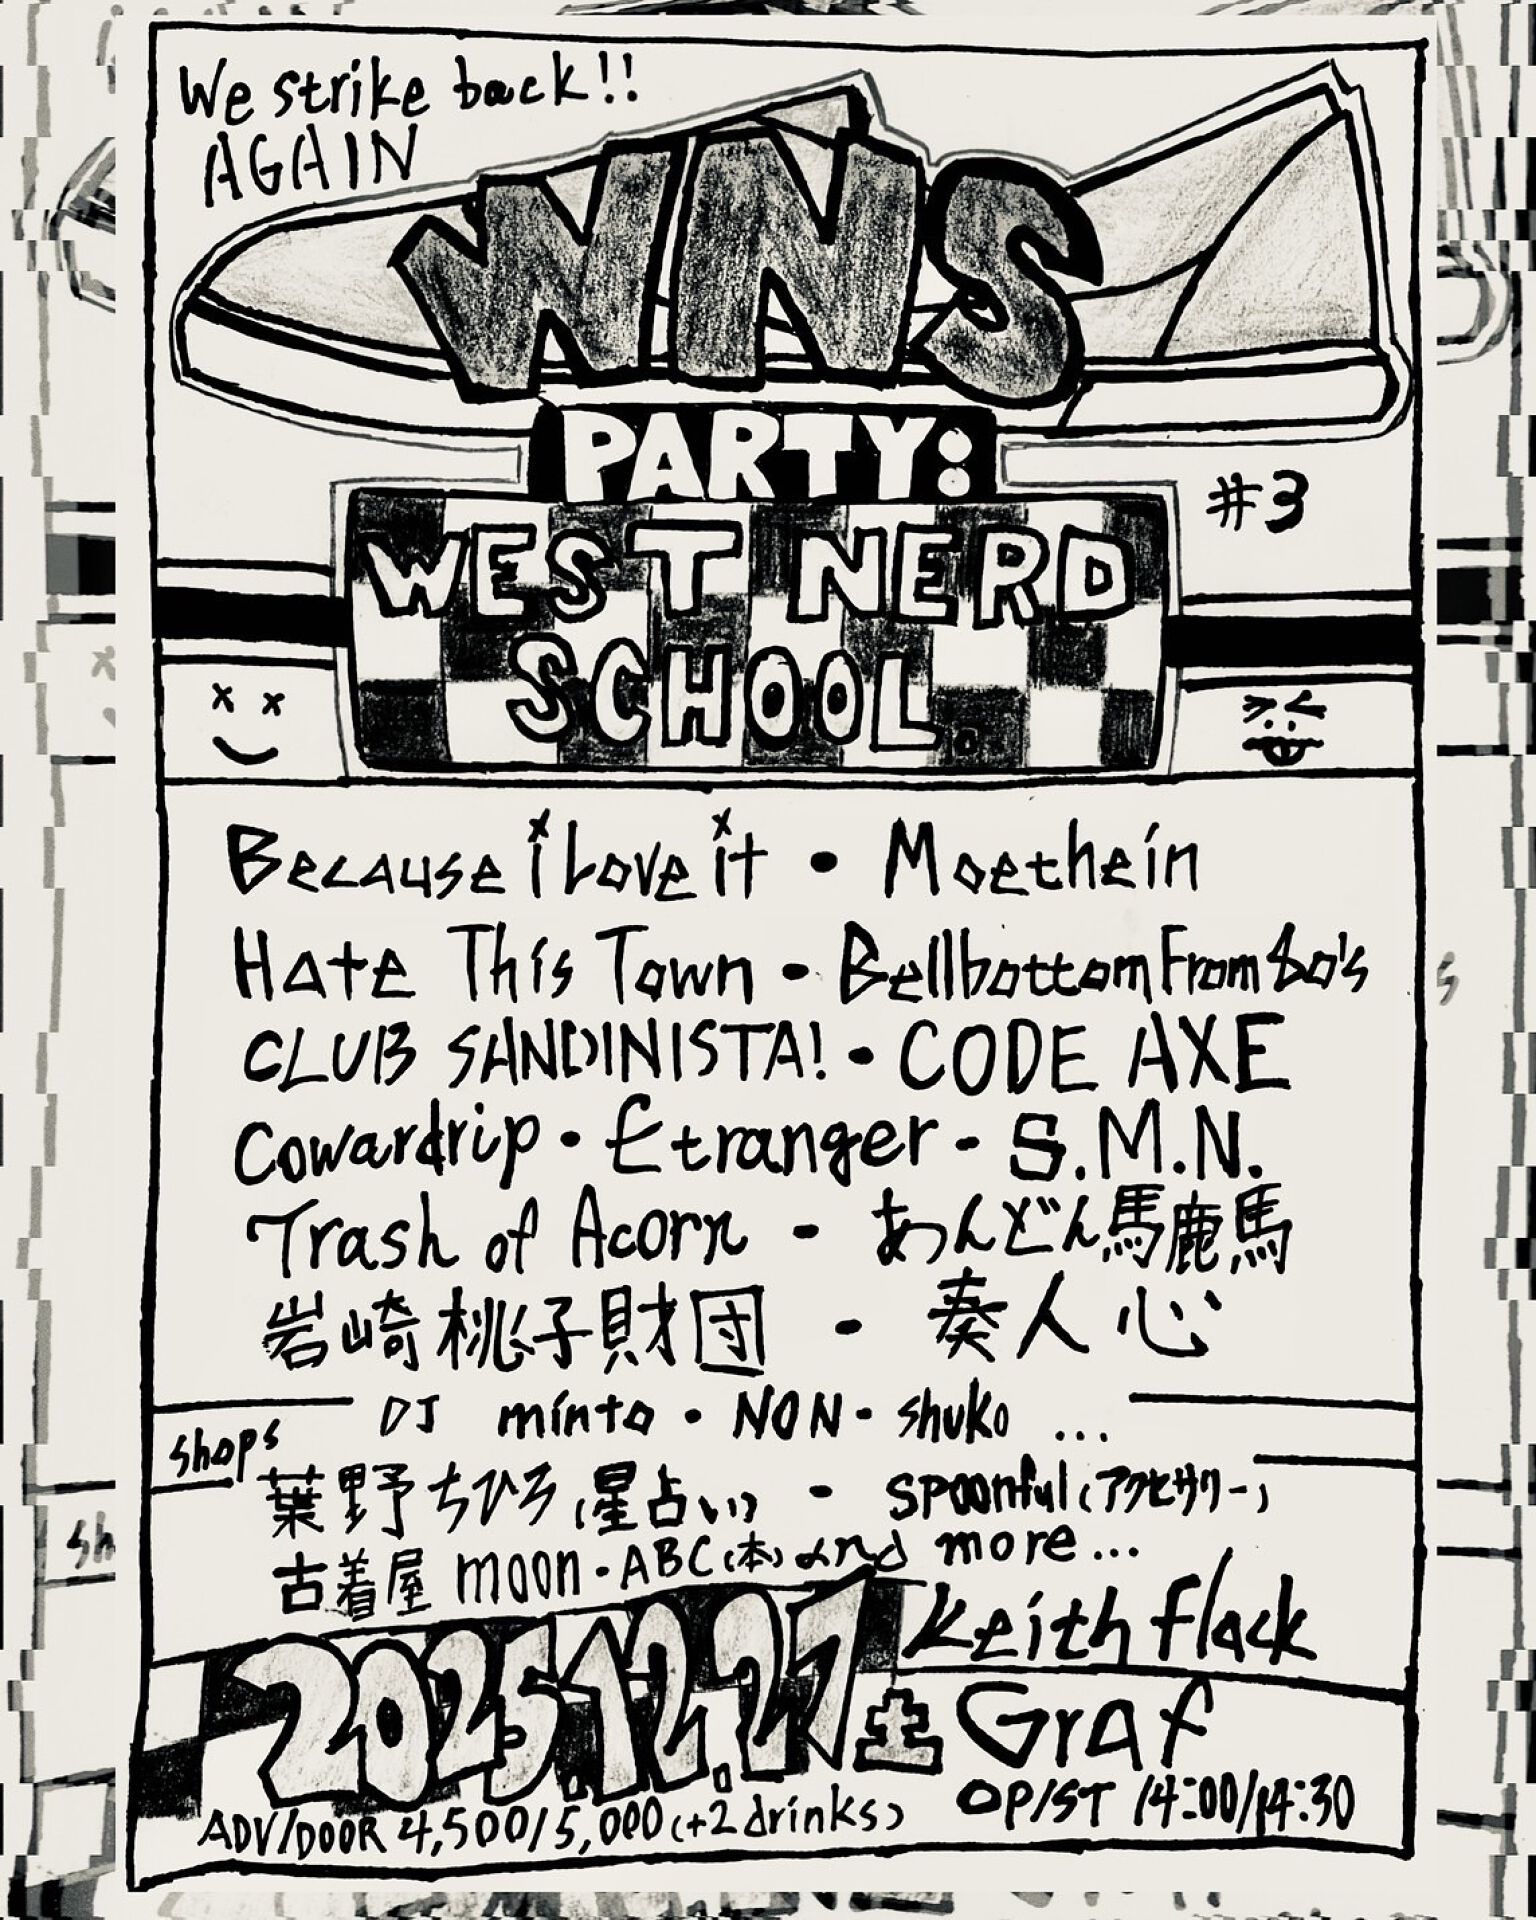 We strike back!!
AGAIN
WNS
PARTY:
#3
WEST NERD
SCHOOL.
Because i Love it • Moethein
Hate This Town • Bellbottom From 80's
CLUB SANDINISTA! • CODE AXE
Cowardrip • Etranger • S.M.N.
Trash of Acorn • あっんどん馬鹿馬
岩崎桃子財団 • 奏人心
DJ minto • NON • shuko ...
shops
葉野ちひろ(星占い) • Spoonful(アクセサリー)
古着屋 moon • ABC(本) and more...
2025.12.27 土
Keith flack
Graf
ADV/DOOR 4,500/5,000 (+2 drinks)
OP/ST 14:00/14:30